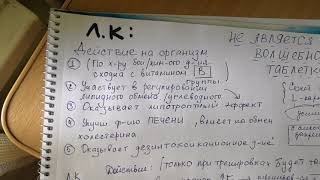 Л.К:
НЕ ЯВЛЯЕТСЯ
ВОЛШЕБНОЙ
ТАБЛЕТКОЙ
Действие на организм
① (По х-ру
сходна с витамином В
группы
② Участвует в регулировании
липидного обмена/углеводного
③ Оказывает липотропный эффект
④ Улучш. ф-цию ПЕЧЕНИ, влияет на обмен
холестерина
⑤ Оказывает дезинтоксикационное д-ие
Л.К. Действие: (только при тренировках будет